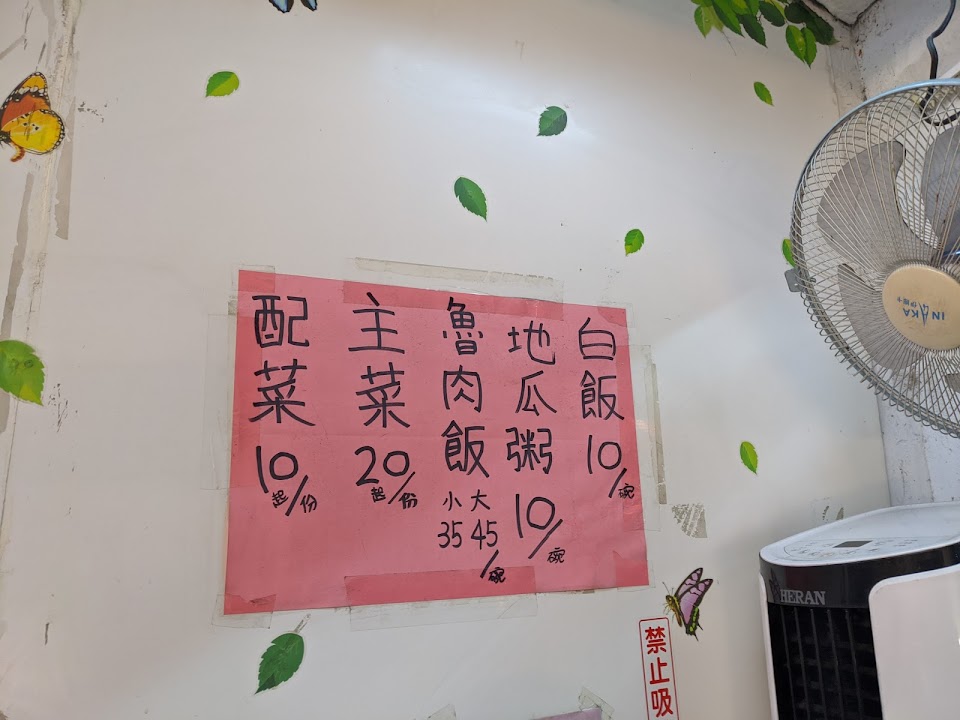 白飯10/碗
地瓜粥10/碗
魯肉飯
小35 大45/碗
主菜20起/份
配菜10起/份
INAKA
HERAN
禁止吸